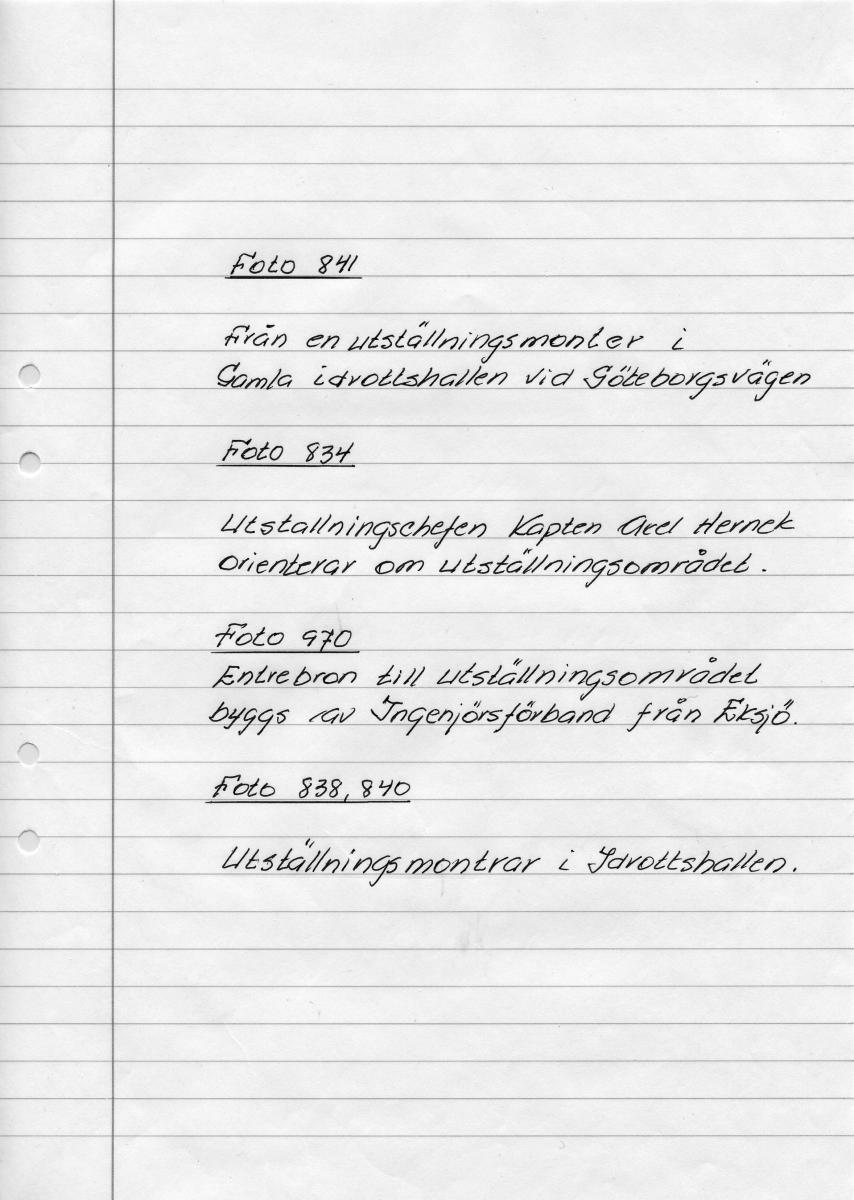 Foto 841
Från en utställningsmonter i
Gamla idrottshallen vid Göteborgsvägen
Foto 834
Utstallningschefen Kapten Axel Hernek
orienterar om utställningsområdet.
Foto 970
Entrebron till utställningsområdet
byggs av Ingenjörsförband från Eksjö.
Foto 838, 840
Utställningsmontrar i Idrottshallen.